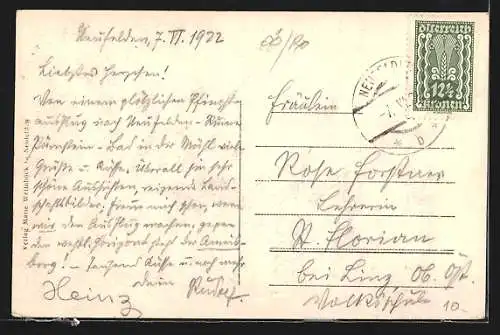 Neufelden, 7. VI. 1922
Liebstes Herzchen!
Von einem plötzlichen Pfingst-
ausflug nach Neufelden - Ruine
Pürnstein - Bad in der Mühl viele
Grüße u. Küsse. Überall sehr
schöne Aussichten, reizende Land-
schaftsbilder. wenn
wir den Ausflug machen, gegen
den westl. Horizont der
berg! - Tausend Küsse u. noch mehr
dein Rudolf.
Heinz
Verlag Marie
Österreich
12½
Kronen
NEUFELDEN
Fräulein
Rose Forstner
Lehrerin
St. Florian
bei Linz Ob. Öst.
Volksschule
10.-